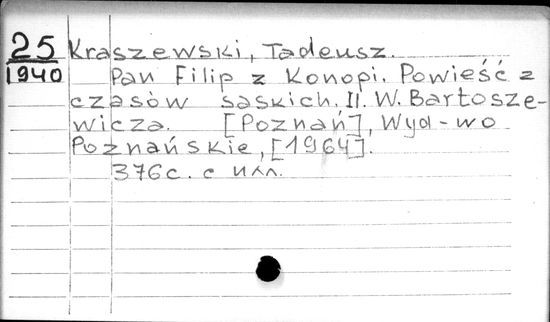 25 Kraszewski, Tadeusz.
1940 Pan Filip z Konopi. Powieść z
czasów saskich. Il. W. Bartosze-
wicza. [Poznań], Wyd-wo
Poznańskie, [1964].
376с. с илл.